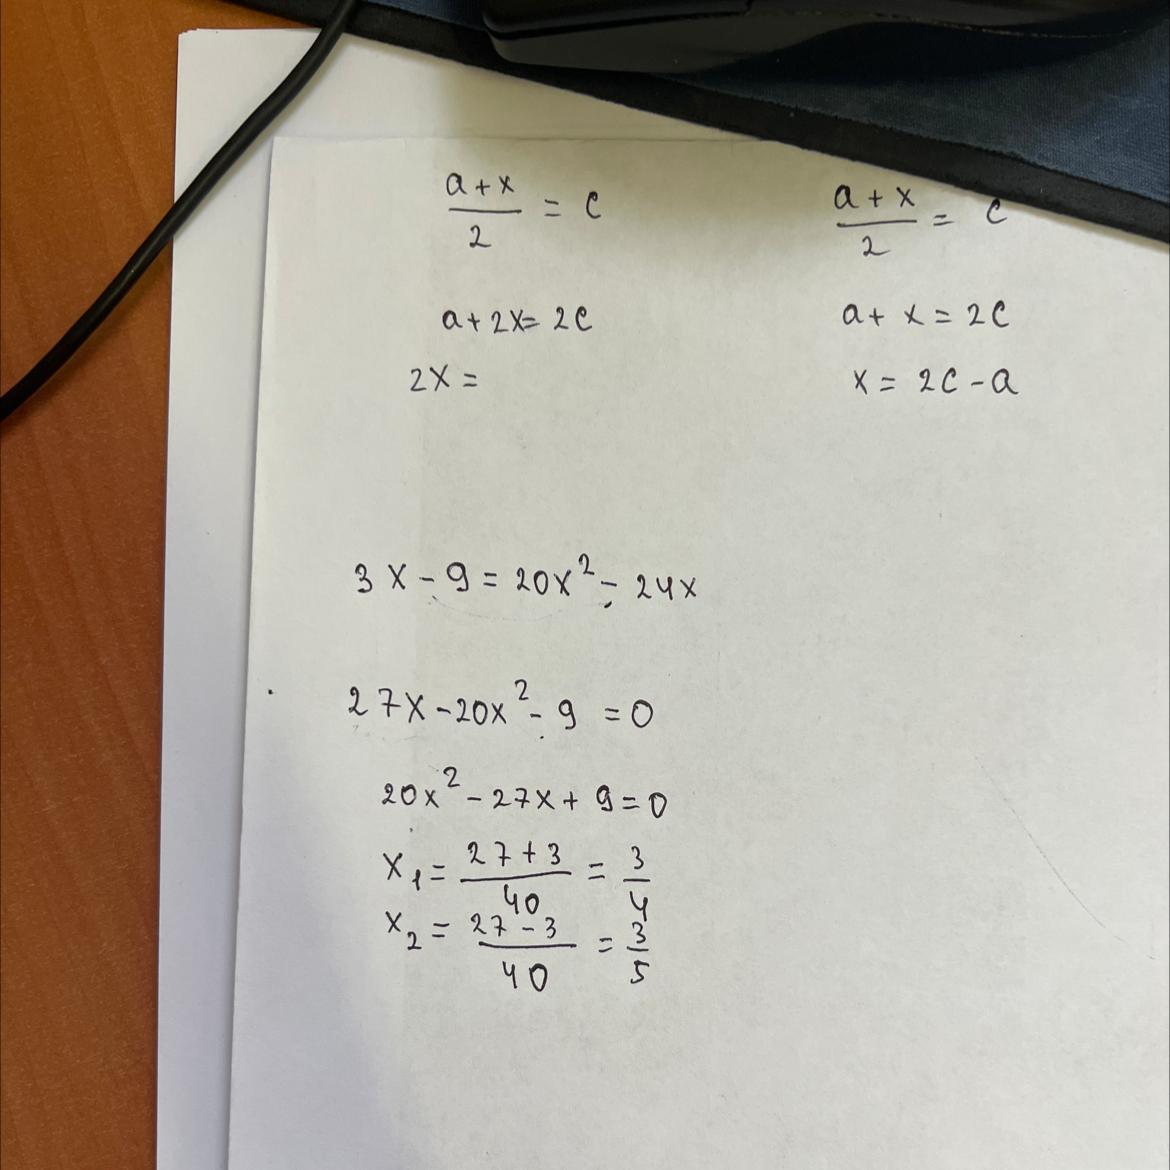 a + x / 2 = c
a + 2x = 2c
2x =
a + x / 2 = c
a + x = 2c
x = 2c - a
3x - 9 = 20x² - 24x
27x - 20x² - 9 = 0
20x² - 27x + 9 = 0
x₁ = 27 + 3 / 40 = 3 / 4
x₂ = 27 - 3 / 40 = 3 / 5